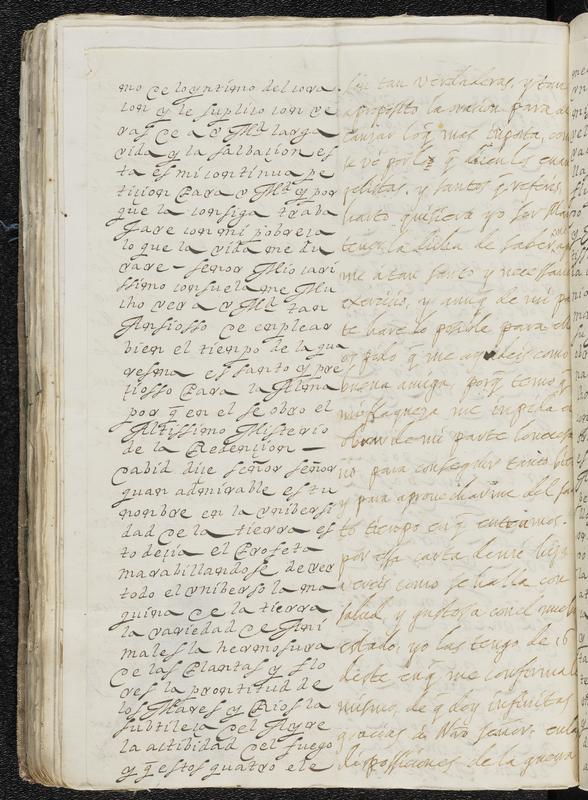 mo de lo yntimo del cora
con y le suplico con ve
ras de a v Mgd larga
vida y la salbacion es
ta es mi continua pe
ticion para v Mgd y por
que la consiga traba
jare con mi pobreza
lo que la vida me du
rare - señor Mio cari
ssimo consuela me Mu
cho ver a v Mgd tan
Ansiosso de emplear
bien el tiempo de la qua
resma es santo y pre
tiosso para la Alma
por q̄ en el se obro el
Altissimo Misterio
de la Redencion —
Dabid dice señor señor
quan admirable es tu
nombre en la unibersi
dad de la tierra es
to decia el Profeta
marabillandose de ver
todo el uniberso la ma
quina de la tierra
la variedad de Ani
males la hermosura
de las Plantas y flo
res la prontitud de
los Mares y Rios la
subtileca del Ayre
la actibidad del fuego
y q̄ estos quatro ele
son tan verdaderas, y tan
aproposito la oracion para al
canzar lo q̄ mas importa, como
se vé por lo q̄ dicen los euan
gelistas, y santos q̄ referis,
harto quisiera yo sor Maria
tener la dicha de saber
me a tan santo y necessario
exercicio, y aunq̄ de mi par
te hare lo posible para ello
os pido q̄ me ayudeis como
buena amiga, porq̄ temo q̄
mi flaqueza me impida el
obrar de mi parte lo necesa
rio para conseguir tanto bien
y para aprovecharme del san
to tiempo en q̄ entramos.
por essa carta de mi hija
vereis como se halla con
salud y gustosa con el nuebo
estado, yo las tengo de 16
deste en q̄ me confirma lo
mismo, de q̄ doy infinitas
gracias a Nro señor. en las
disposiciones de la guerra